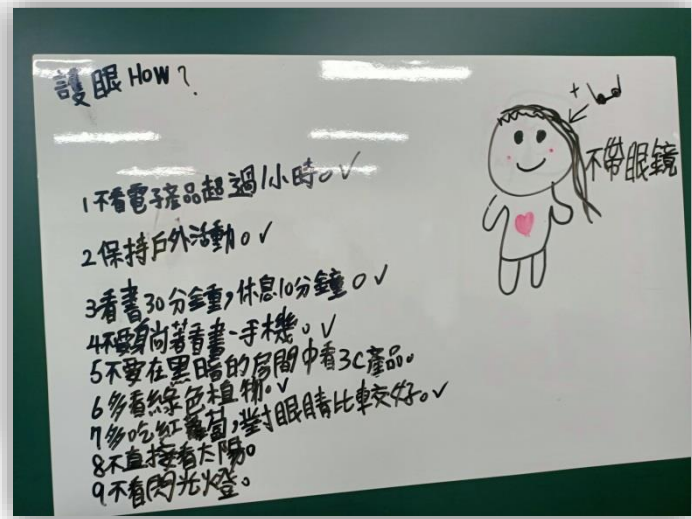 護眼 How?
1 不看電子產品超過1小時。✓
2 保持戶外活動。✓
3 看書30分鐘,休息10分鐘。✓
4 不要 著看書、手機。✓
5 不要在黑暗的房間中看3C產品。
6 多看綠色植物。✓
7 多吃紅蘿蔔,對眼睛比較好。✓
8 不直接看太陽。
9 不看閃光燈。
+
不帶眼鏡